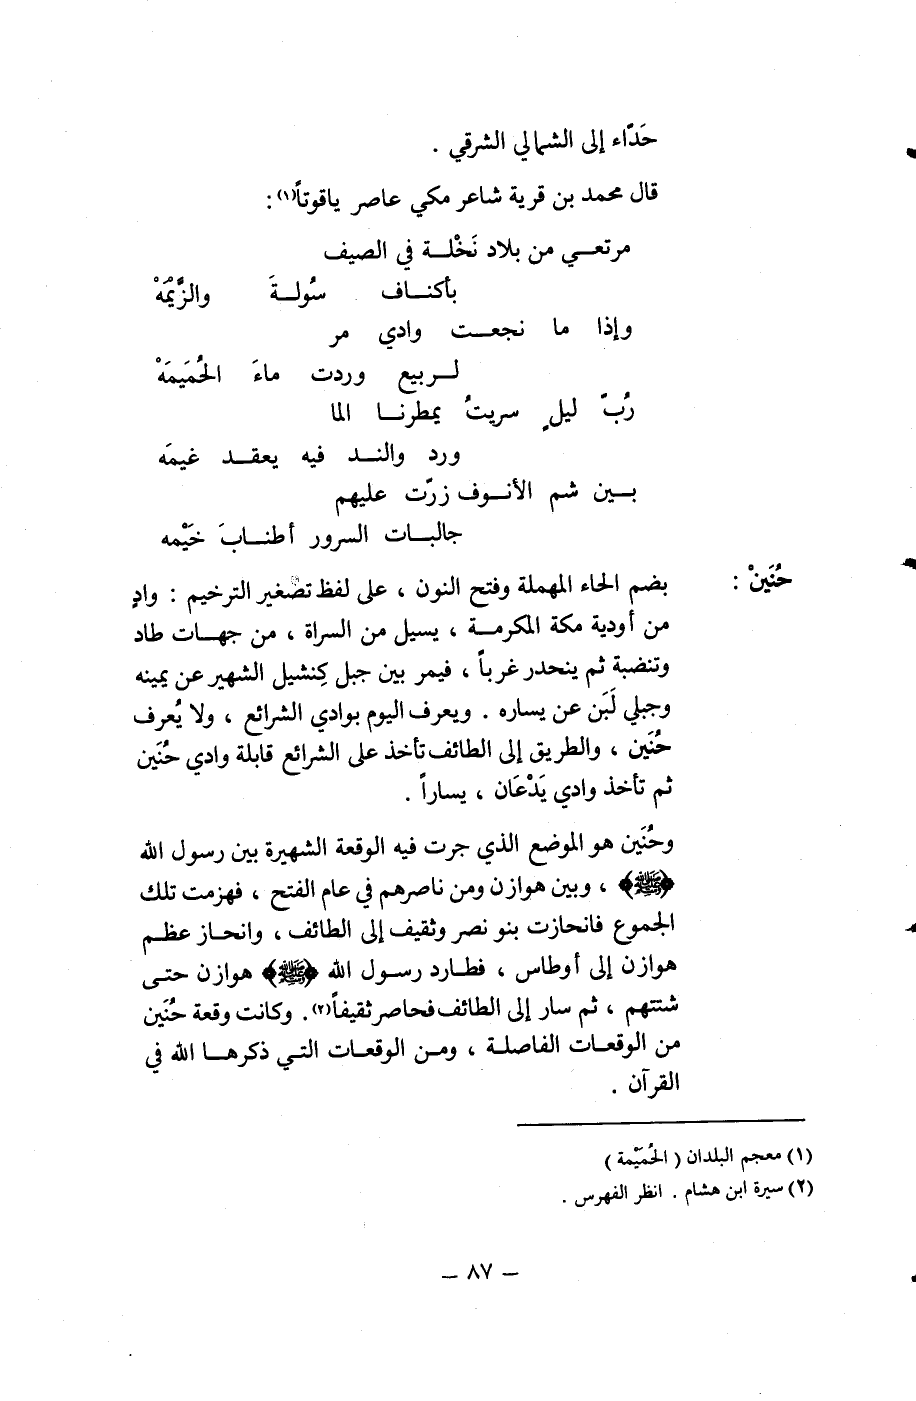 حَدّاء إلى الشمالي الشرقي .
قال محمد بن قرية شاعر مكي عاصر ياقوتاً(١):
مرتعي من بلاد نَخْلة في الصيف
بأكناف سُولةَ والزَّيْمَهْ
وإذا ما نجعت وادي مر
لربيع وردت ماءَ الحُمَيمَهْ
رُبّ ليلٍ سريتُ يمطرنا الما
ورد والند فيه يعقد غيمَه
بين شم الأنوف زرّت عليهم
جالبات السرور أطنابَ خَيْمه
حُنَينْ : بضم الحاء المهملة وفتح النون ، على لفظ تصغير الترخيم : وادٍ
من أودية مكة المكرمة ، يسيل من السراة ، من جهات طاد
وتنضبة ثم ينحدر غرباً ، فيمر بين جبل كِنشيل الشهير عن يمينه
وجبلي لَبَن عن يساره . ويعرف اليوم بوادي الشرائع ، ولا يُعرف
حُنَين ، والطريق إلى الطائف تأخذ على الشرائع قابلة وادي حُنَين
ثم تأخذ وادي يَدْعَان ، يساراً .
وحُنَين هو الموضع الذي جرت فيه الوقعة الشهيرة بين رسول الله
﴿ﷺ﴾ ، وبين هوازن ومن ناصرهم في عام الفتح ، فهزمت تلك
الجموع فانحازت بنو نصر وثقيف إلى الطائف ، وانحاز عظم
هوازن إلى أوطاس ، فطارد رسول الله ﴿ﷺ﴾ هوازن حتى
شتتهم ، ثم سار إلى الطائف فحاصر ثقيفاً(٢). وكانت وقعة حُنَين
من الوقعات الفاصلة ، ومن الوقعات التي ذكرها الله في
القرآن .
(١) معجم البلدان ( الحُمَيْمة )
(٢) سيرة ابن هشام . انظر الفهرس .
– ٨٧ –